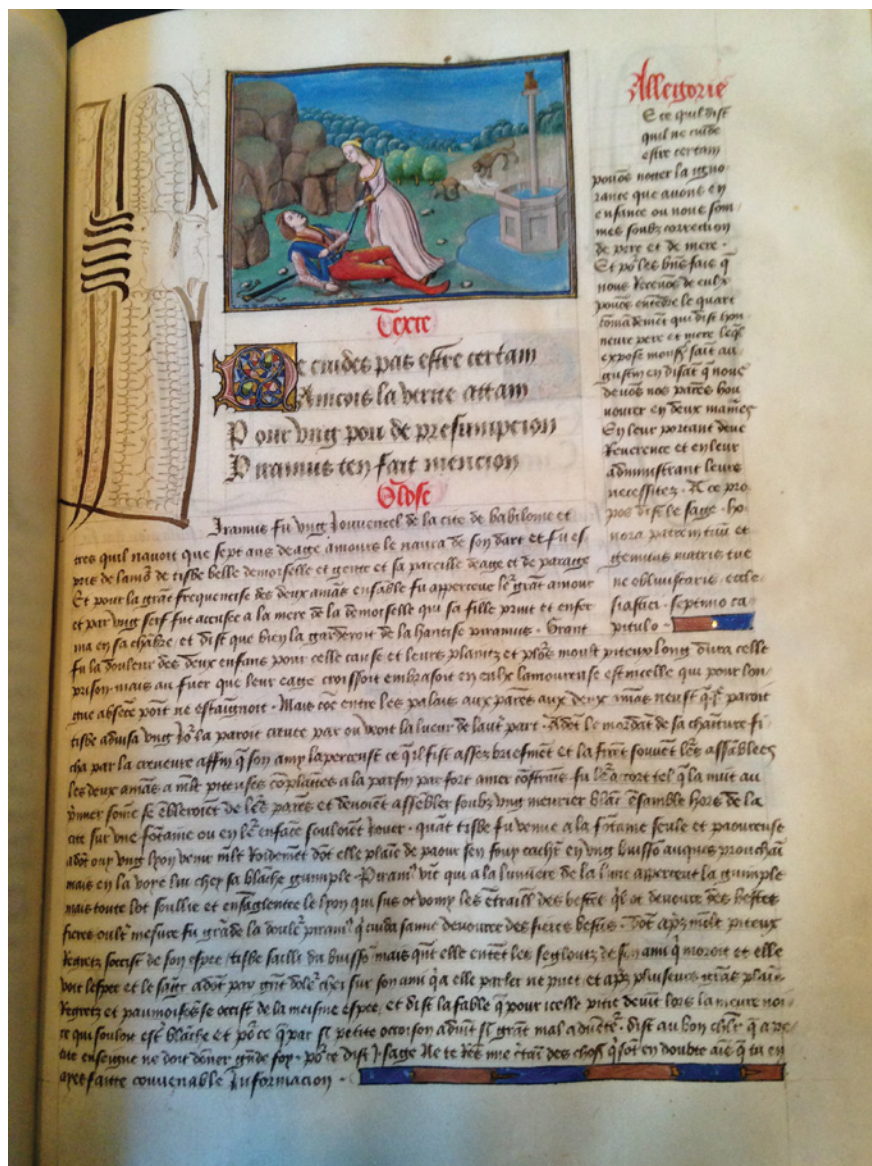 Texte
Ne cuides pas estre certain
Aincois la verite attain
Pour ung pou de presumpcion
Piramus ten fait mencion
Glose
Piramus fu ung Jouvencel de la cite de babilonie et
tres quil navoit que sept ans de age amours le navra de son dart et fu es
pris de lamo᷑ de tisbe belle demoiselle et gente et sa pareille de age et de parage
Et pour la grāt frequencise des deux amās ensāble fu apperceue le᷑ grāt amour
et par ung serf fut accusee a la mere de la demoiselle qui sa fille print et enfer
ma en sa chābre / et dist que bien la garderoit de la hantise piramus · Grant
fu la douleur des deux enfans pour celle cause et leurs plaintz et plo᷑s moult piteux long dura celle
prison · mais au fuer que leur eage croissoit embrasoit en eulx lamoureuse estincelle qui pour lon
gue absēce point ne estaignoit · Mais cōe entre les palais aux parēs aux deux amās neust q̄ paroit
tisbe advisa ung Jo᷑ la paroit crevee par ou veoit la lueur de laut᷑ part · Adōt le mordāt de sa chainture fi
cha par la creveure affin q̄ son amy lapperceust ce q̄l fist assez briefmēt et la firēt souvēt le᷑s assāblees
les deux amās a mlt piteuses cōplaītes a la parfin par fort amer cōtrais fu le᷑ acort tel q̄ la nuit au
p̄mier somē se ēbleroiēt de le᷑s parēs et devoiēt assēbler soubz ung meurier blāc ēsamble hors de la
cite sur une fōtaine ou en le᷑ enface souloiēt Jouer · quāt tisbe fu venue a la fōtaine seule et paoureuse
adōt ouy ung lyon venir mlt Roidemēt dōt elle plaīe de paour sen fouy cachr̄ en ung buissō auques prouchaī
mais en la voye luy chey sa blāche guimple · Piram᷒ vīt qui a la lumiere de la lune apperceut la guimple
mais toute lot soullie et ensāglentee le lyon qui sus ot vomy les ētrailles des bestes q̄l ot devouré des bestes
fieres oult᷑ mesure fu grāde la doule᷑ piram᷒ q̄ cuida samie devouree des fieres bestes · Dōt ap̄z mlt piteux
Regretz soccist de son espee / tisbe sailli du buissō mais qnt elle entēt les segloutz de son ami q̄ moroit et elle
voit lespee et le sang adōt par grāt dole᷑ chei sur son ami q̄ a elle parler ne puet / et ap̄z plusieurs grās plaīs
Regretz et paumoisōs se occist de la meisme espee / et dist la fable q̄ pour icelle pitie devīt lors la meure noi
re qui souloit est᷑ blāche et po᷑ ce q̄ par si petite occoison advīt si grāt mal advēte᷑ · dist au bon chl᷑r q̄ a pe
tite enseigne ne doit dōner grāde foy · po᷑ce dist J sage Ne te rēs mie c᷑tain des choses q̄ sōt en doubte aīs q̄ tu en
ayes faitte convenable Informacion ·
Allegorie
Et ce quil dist
quil ne cuide
estre certain
povōs notter la igno
rance que avons en
enfance ou nous som
mes soubz correction
de pere et de mere ·
Et po᷑ les biēs fais q̄
nous Recevōs de eulx
povōs entēdre le quart
comādemēt qui dist hon
neure pere et mere leq̄l
expose monsr̄ saīt au
gustin en disāt q̄ nous
devōs nos parēs hon
nourer en deux manieres
En leur portant deue
Reverence et en leur
administrant leurs
necessitez · A ce pro
pos dist le sage · ho
nora patrem tuū et
gemitus matris tue
ne obliviscaris · eccle
siastici · septimo ca
pitulo ·